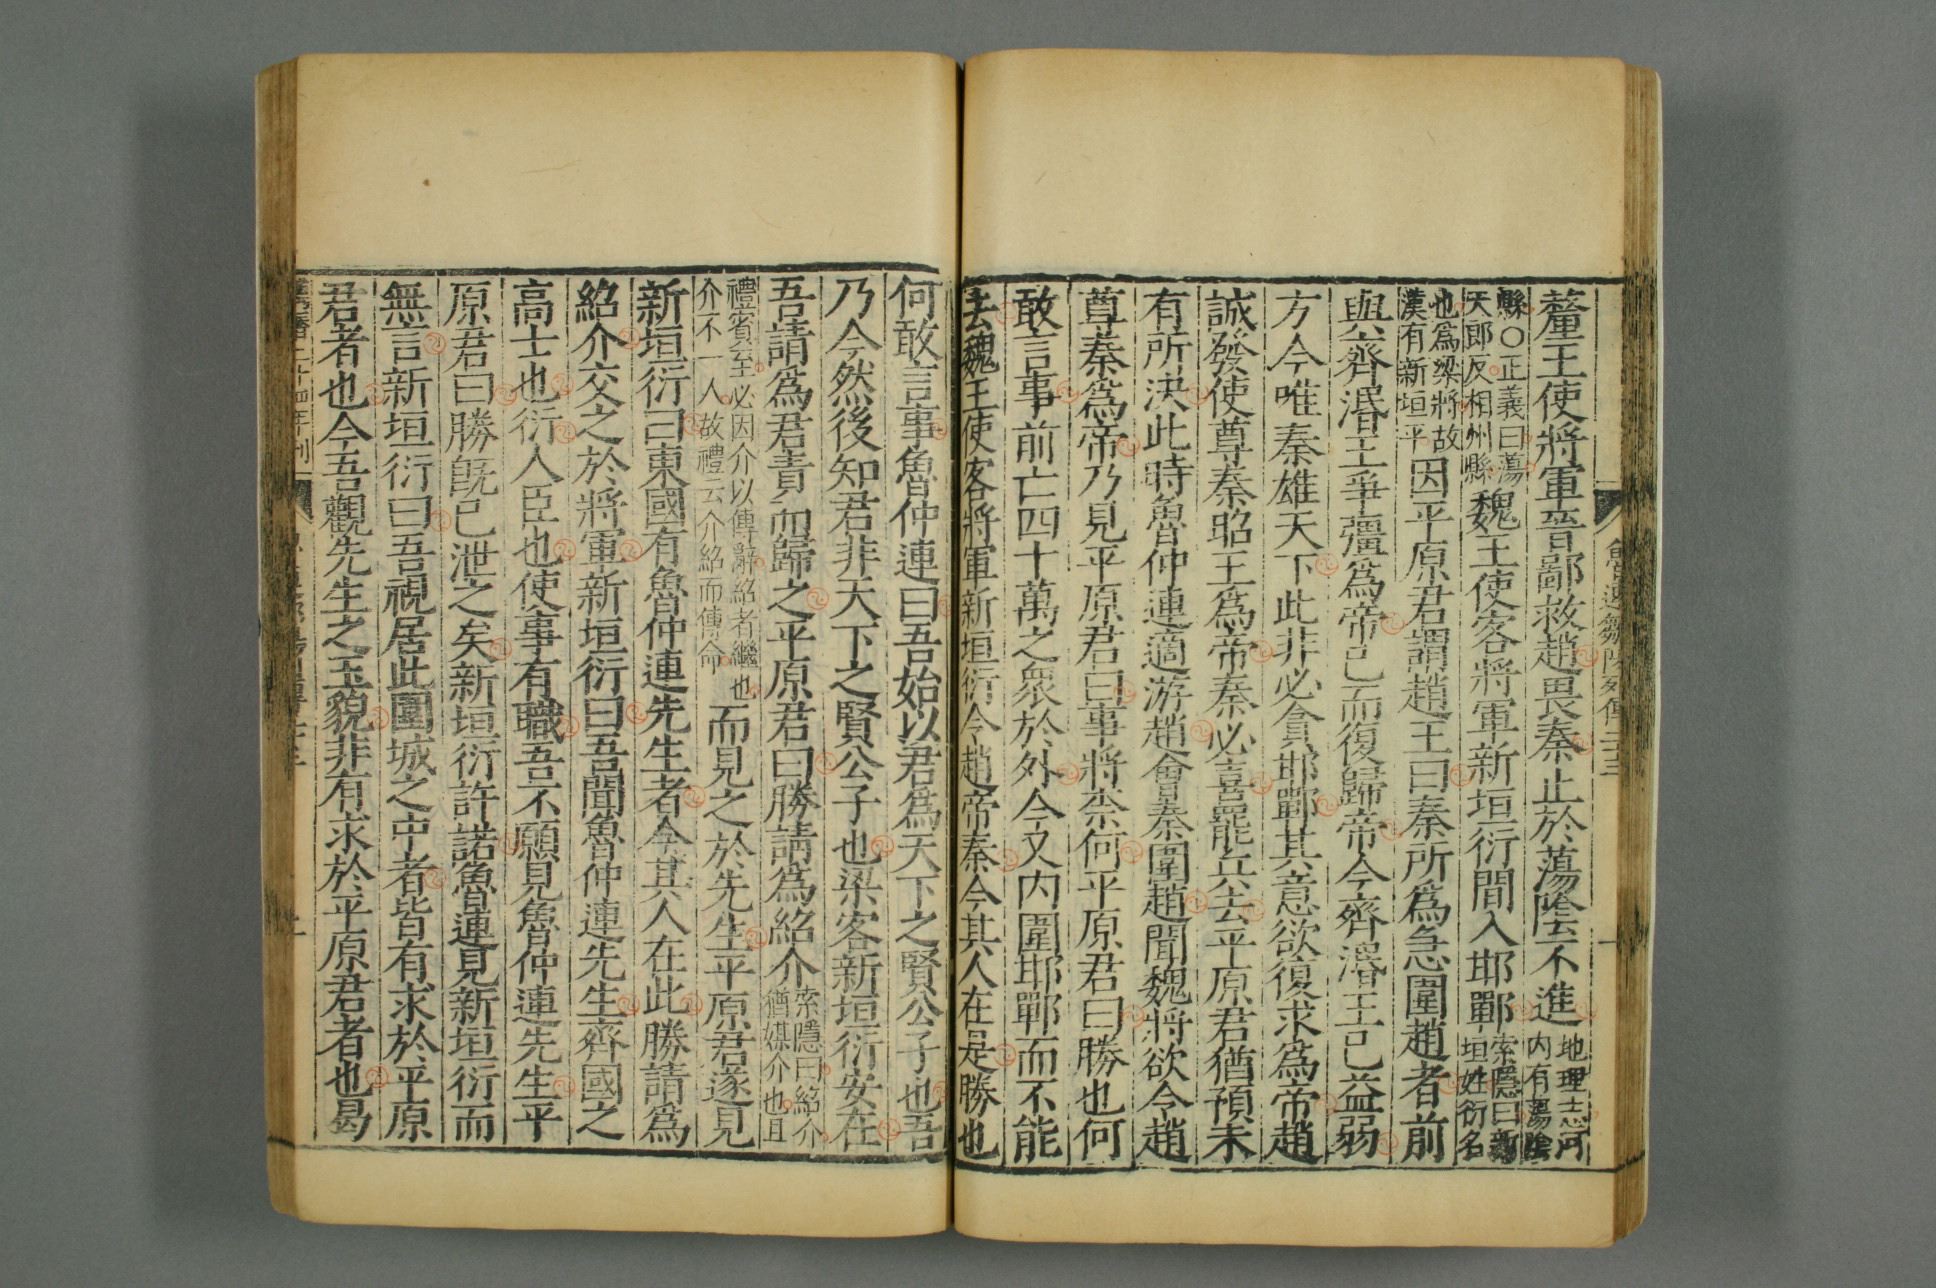 釐王使將軍晉鄙救趙畏秦止於蕩陰不進地理志河內有蕩陰
縣○正義曰蕩天郎反相州縣魏王使客將軍新垣衍間入邯鄲索隱曰新垣姓衍名
也爲梁將故漢有新垣平因平原君謂趙王曰秦所爲急圍趙者前
與齊湣王爭彊爲帝已而復歸帝今齊湣王已益弱
方今唯秦雄天下此非必貪邯鄲其意欲復求爲帝趙
誠發使尊秦昭王爲帝秦必喜罷兵去平原君猶預未
有所決此時魯仲連適游趙會秦圍趙聞魏將欲令趙
尊秦爲帝乃見平原君曰事將柰何平原君曰勝也何
敢言事前亡四十萬之衆於外今又內圍邯鄲而不能
去魏王使客將軍新垣衍令趙帝秦今其人在是勝也
何敢言事魯仲連曰吾始以君爲天下之賢公子也吾
乃今然後知君非天下之賢公子也梁客新垣衍安在
吾請爲君責而歸之平原君曰勝請爲紹介索隱曰紹介猶媒介也且
禮賓至必因介以傳辭紹者繼也介不一人故禮云介紹而傳命而見之於先生平原君遂見
新垣衍曰東國有魯仲連先生者今其人在此勝請爲
紹介交之於將軍新垣衍曰吾聞魯仲連先生齊國之
高士也衍人臣也使事有職吾不願見魯仲連先生平
原君曰勝旣已泄之矣新垣衍許諾魯連見新垣衍而
無言新垣衍曰吾視居此圍城之中者皆有求於平原
君者也今吾觀先生之玉貌非有求於平原君者也曷